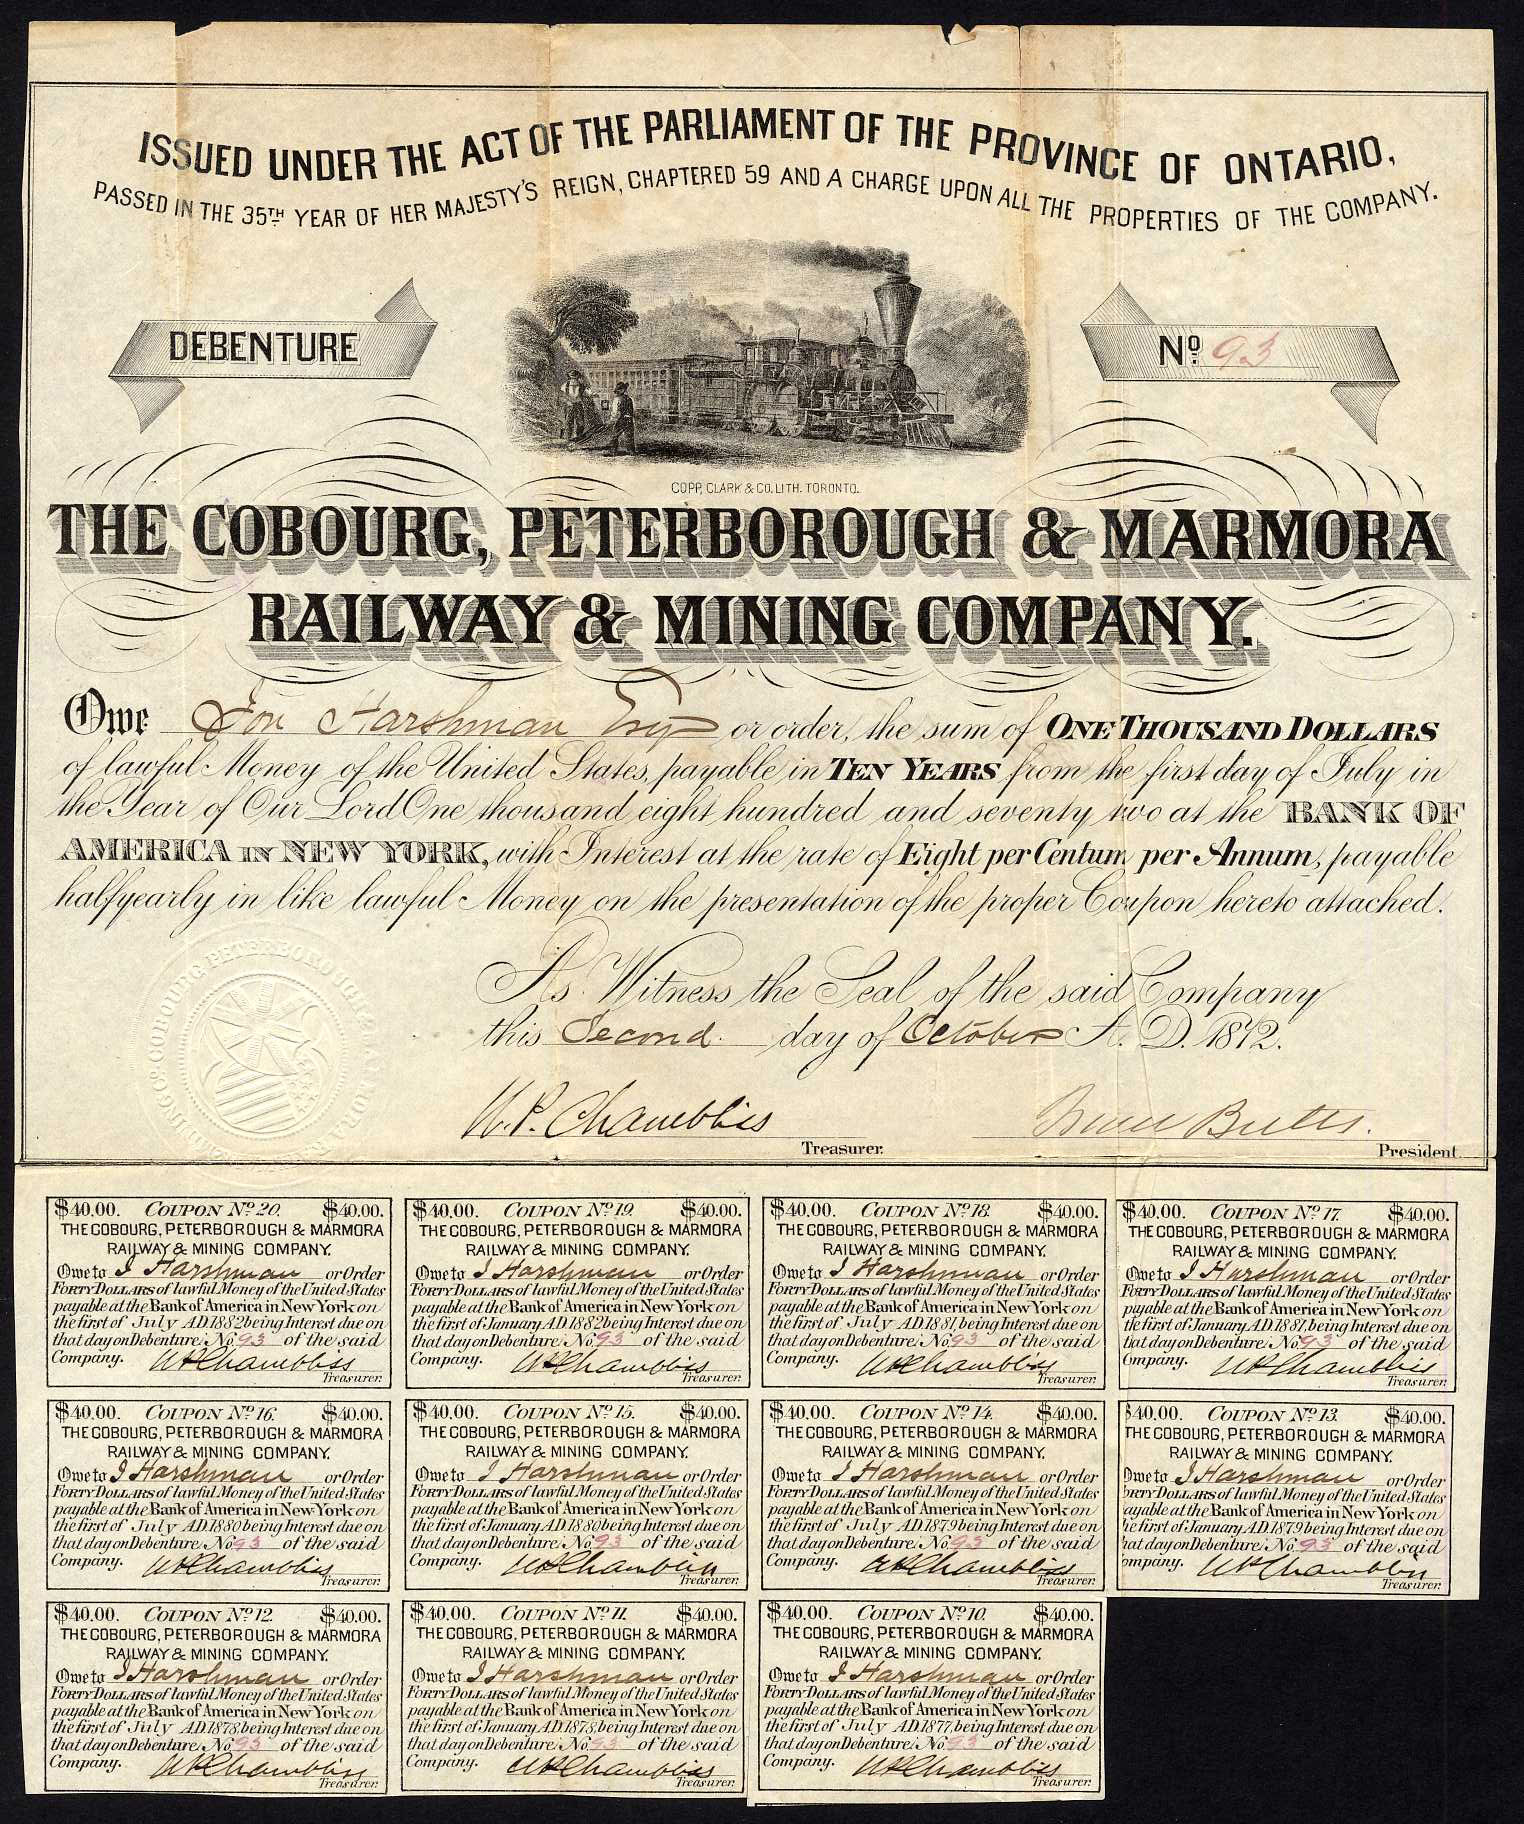 ISSUED UNDER THE ACT OF THE PARLIAMENT OF THE PROVINCE OF ONTARIO,
PASSED IN THE 35TH YEAR OF HER MAJESTY'S REIGN, CHAPTERED 59 AND A CHARGE UPON ALL THE PROPERTIES OF THE COMPANY.
DEBENTURE
No. 93
COPP, CLARK & CO. LITH. TORONTO.
THE COBOURG, PETERBOROUGH & MARMORA
RAILWAY & MINING COMPANY.
Owe Jon Harshman Esq or order, the sum of ONE THOUSAND DOLLARS
of lawful Money of the United States, payable in TEN YEARS from the first day of July in
the Year of Our Lord One thousand eight hundred and seventy two at the BANK OF
AMERICA IN NEW YORK, with Interest at the rate of Eight per Centum per Annum, payable
halfyearly in like lawful Money on the presentation of the proper Coupon hereto attached.
As Witness the Seal of the said Company
this Second day of October A.D. 1872.
W.P. Chambliss
Treasurer.
President.
$40.00. COUPON No. 20. $40.00.
THE COBOURG, PETERBOROUGH & MARMORA
RAILWAY & MINING COMPANY.
Owe to J Harshman or Order
FORTY DOLLARS of lawful Money of the United States
payable at the Bank of America in New York on
the first of July A.D. 1882 being Interest due on
that day on Debenture No. 93 of the said
Company. WP Chambliss
Treasurer.
$40.00. COUPON No. 19. $40.00.
THE COBOURG, PETERBOROUGH & MARMORA
RAILWAY & MINING COMPANY.
Owe to J Harshman or Order
FORTY DOLLARS of lawful Money of the United States
payable at the Bank of America in New York on
the first of January A.D. 1882 being Interest due on
that day on Debenture No. 93 of the said
Company. WP Chambliss
Treasurer.
$40.00. COUPON No. 18. $40.00.
THE COBOURG, PETERBOROUGH & MARMORA
RAILWAY & MINING COMPANY.
Owe to J Harshman or Order
FORTY DOLLARS of lawful Money of the United States
payable at the Bank of America in New York on
the first of July A.D. 1881, being Interest due on
that day on Debenture No. 93 of the said
Company. WP Chambliss
Treasurer.
$40.00. COUPON No. 17. $40.00.
THE COBOURG, PETERBOROUGH & MARMORA
RAILWAY & MINING COMPANY.
Owe to J Harshman or Order
FORTY DOLLARS of lawful Money of the United States
payable at the Bank of America in New York on
the first of January A.D. 1881, being Interest due on
that day on Debenture No. 93 of the said
Company. WP Chambliss
Treasurer.
$40.00. COUPON No. 16. $40.00.
THE COBOURG, PETERBOROUGH & MARMORA
RAILWAY & MINING COMPANY.
Owe to J Harshman or Order
FORTY DOLLARS of lawful Money of the United States
payable at the Bank of America in New York on
the first of July A.D. 1880 being Interest due on
that day on Debenture No. 93 of the said
Company. WP Chambliss
Treasurer.
$40.00. COUPON No. 15. $40.00.
THE COBOURG, PETERBOROUGH & MARMORA
RAILWAY & MINING COMPANY.
Owe to J Harshman or Order
FORTY DOLLARS of lawful Money of the United States
payable at the Bank of America in New York on
the first of January A.D. 1880 being Interest due on
that day on Debenture No. 93 of the said
Company. WP Chambliss
Treasurer.
$40.00. COUPON No. 14. $40.00.
THE COBOURG, PETERBOROUGH & MARMORA
RAILWAY & MINING COMPANY.
Owe to J Harshman or Order
FORTY DOLLARS of lawful Money of the United States
payable at the Bank of America in New York on
the first of July A.D. 1879 being Interest due on
that day on Debenture No. 93 of the said
Company. WP Chambliss
Treasurer.
$40.00. COUPON No. 13. $40.00.
THE COBOURG, PETERBOROUGH & MARMORA
RAILWAY & MINING COMPANY.
Owe to J Harshman or Order
FORTY DOLLARS of lawful Money of the United States
payable at the Bank of America in New York on
the first of January A.D. 1879 being Interest due on
that day on Debenture No. 93 of the said
Company. WP Chambliss
Treasurer.
$40.00. COUPON No. 12. $40.00.
THE COBOURG, PETERBOROUGH & MARMORA
RAILWAY & MINING COMPANY.
Owe to J Harshman or Order
FORTY DOLLARS of lawful Money of the United States
payable at the Bank of America in New York on
the first of July A.D. 1878, being Interest due on
that day on Debenture No. 93 of the said
Company. WP Chambliss
Treasurer.
$40.00. COUPON No. 11. $40.00.
THE COBOURG, PETERBOROUGH & MARMORA
RAILWAY & MINING COMPANY.
Owe to J Harshman or Order
FORTY DOLLARS of lawful Money of the United States
payable at the Bank of America in New York on
the first of January A.D. 1878, being Interest due on
that day on Debenture No. 93 of the said
Company. WP Chambliss
Treasurer.
$40.00. COUPON No. 10. $40.00.
THE COBOURG, PETERBOROUGH & MARMORA
RAILWAY & MINING COMPANY.
Owe to J Harshman or Order
FORTY DOLLARS of lawful Money of the United States
payable at the Bank of America in New York on
the first of July A.D. 1877, being Interest due on
that day on Debenture No. 93 of the said
Company. WP Chambliss
Treasurer.